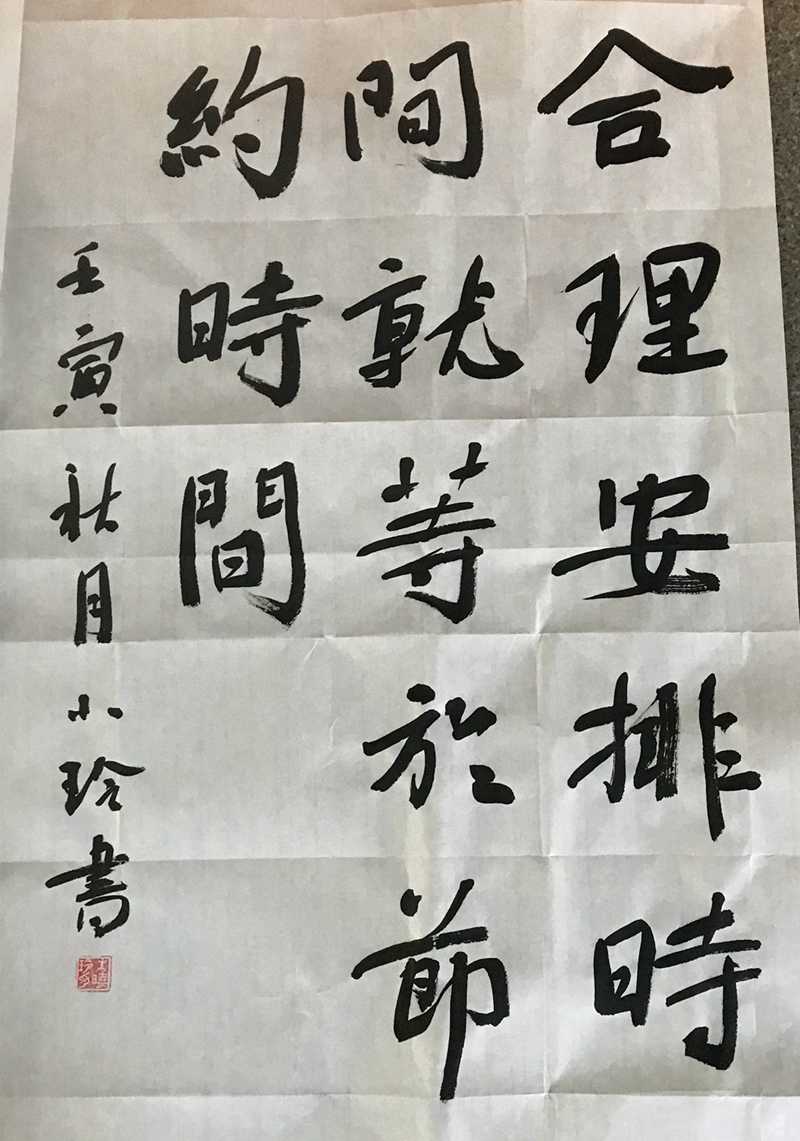 合理安排時
間就等於節
約時間
壬寅秋月小玲書